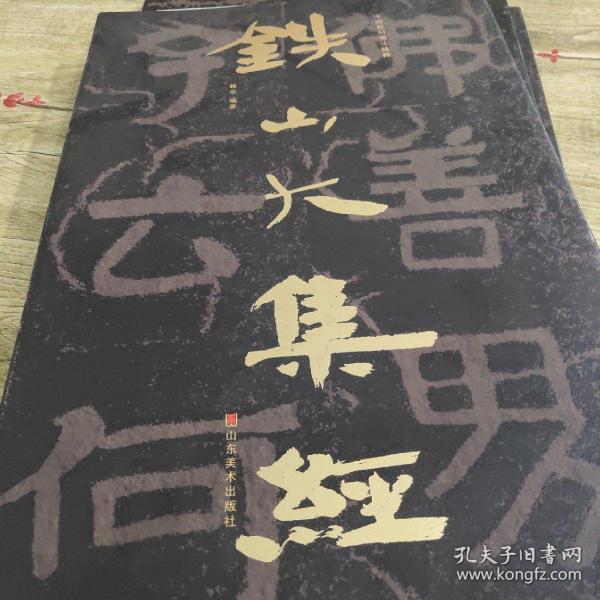 鉄山大集經
山东美术出版社
佛善男
子云何
孔夫子旧书网
www.kongfz.com